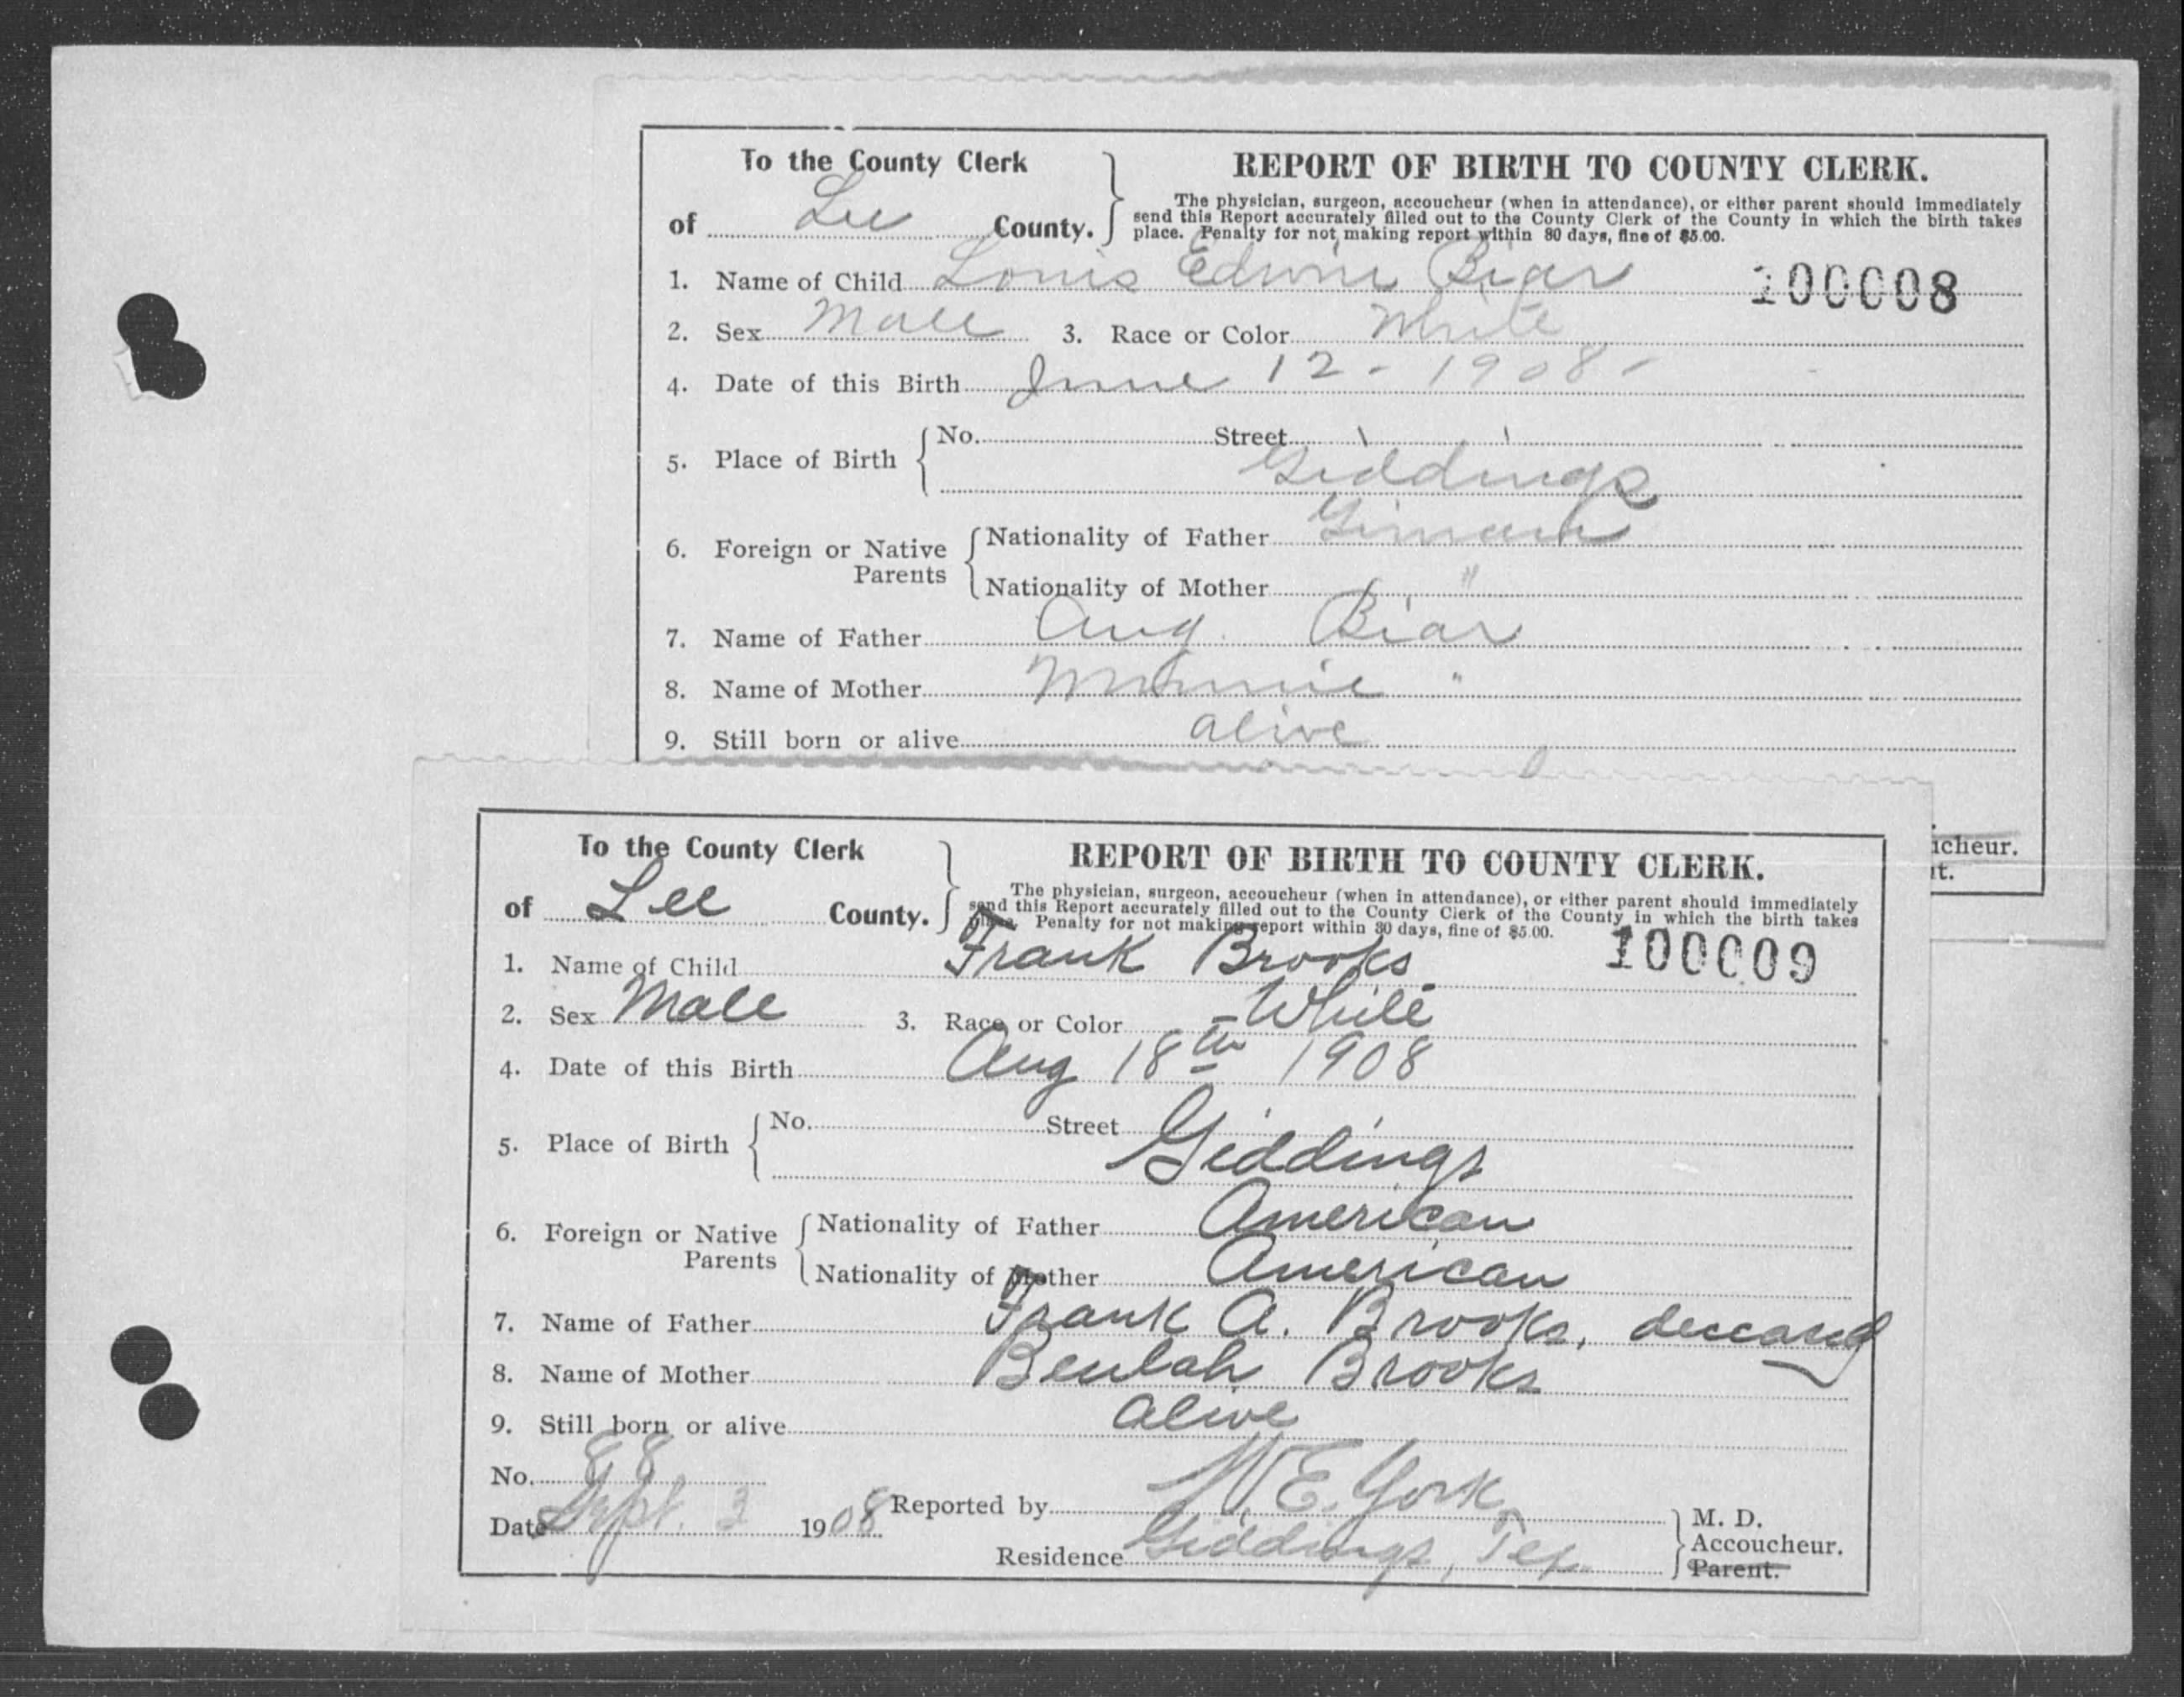 To the County Clerk
of Lee County.
REPORT OF BIRTH TO COUNTY CLERK.
The physician, surgeon, accoucheur (when in attendance), or either parent should immediately
send this Report accurately filled out to the County Clerk of the County in which the birth takes
place. Penalty for not making report within 30 days, fine of $5.00.
1. Name of Child Louis Edwin Biar 100008
2. Sex Male 3. Race or Color White
4. Date of this Birth June 12 - 1908 -
5. Place of Birth No. Street
Giddings
6. Foreign or Native Parents Nationality of Father German
Nationality of Mother "
7. Name of Father Aug. Biar
8. Name of Mother Minnie "
9. Still born or alive alive
icheur.
it.
To the County Clerk
of Lee County.
REPORT OF BIRTH TO COUNTY CLERK.
The physician, surgeon, accoucheur (when in attendance), or either parent should immediately
send this Report accurately filled out to the County Clerk of the County in which the birth takes
place. Penalty for not making report within 30 days, fine of $5.00.
1. Name of Child Frank Brooks 100009
2. Sex Male 3. Race or Color White
4. Date of this Birth Aug 18th 1908
5. Place of Birth No. Street
Giddings
6. Foreign or Native Parents Nationality of Father American
Nationality of Mother American
7. Name of Father Frank A. Brooks, deceased
8. Name of Mother Beulah Brooks
9. Still born or alive alive
No. 88
Date Sept. 3 1908 Reported by W. E. York M. D.
Accoucheur.
Residence Giddings, Tex. Parent.